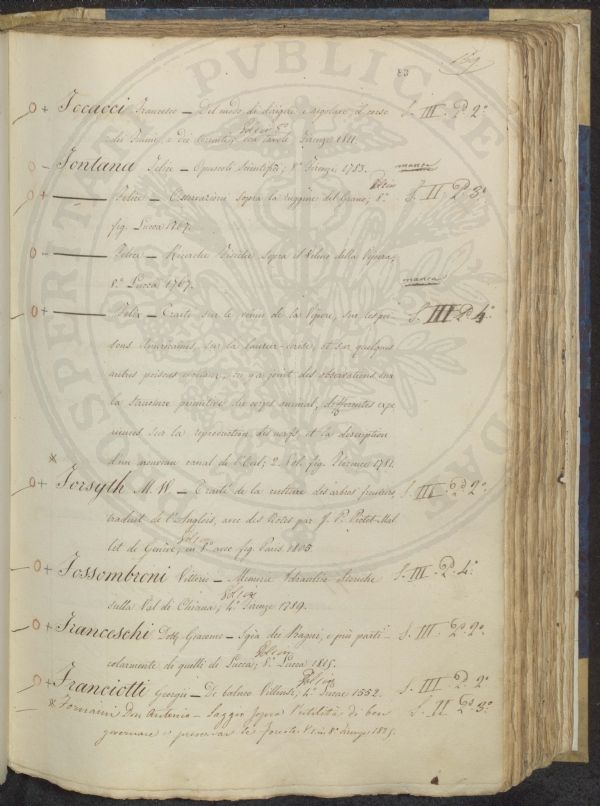 83 159
Focacci Francesco — Del modo di dirigere e regolare il corso S. III. P. 2°
dei Fiumi, e dei Torrenti; con tavole Firenze 1811
Fontana Felice — Opuscoli Scientifici; 8° Firenze 1783. manca
Felice — Osservazioni sopra la ruggine del Grano; 8° S. II. P. 3°
fig. Lucca 1767.
Felice — Ricerche Fisiche sopra il Veleno della Vipera;
8° Lucca 1767. manca
Felix — Traité sur le vénin de la Vipere, sur les poi- S. III P. 4°
sons Americains, sur la laurier-cerise, et sur quelques
autres poisons, on y a joint des observations sur
la structure primitive du corps animal, differentes expe
riences sur la reproduction des nerfs et la description
d'un nouveau canal de l'Oeil; 2. Vol. fig. Florence 1781.
Forsyth M. W. — Traité de la culture des arbres fruitiers S. III. P. 2°
traduit de l'Anglois, avec des Notes par J. P. Pictet-Mal
let de Genève; in 8° avec fig. Paris 1805
Fossombroni Vittorio — Memorie Idraulico Storiche S. III. P. 4°
sulla Val di Chiana; 4° Firenze 1789.
Franceschi Dott. Giacomo — Igia dei Bagni, e più parti S. III. P. 2°
colarmente di quelli di Lucca; 8° Lucca 1815.
Franciotti Georgii — De balneo Villensi; 4° Lucae 1552. S. III P. 2°
x Fornaini Don Antonio — Saggio sopra l'utilità di ben S. II P. 3°
governare e preservar le foreste V. in 8° Firenze 1825.